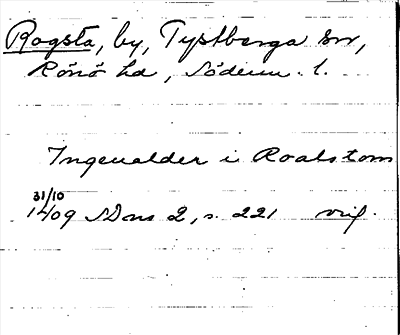 Rogsta, by, Tystberga sn,
Rönö hd, Söderm. l.
Ingeualder i Roalstom
31/10
1409 SDns 2, s. 221 orig.